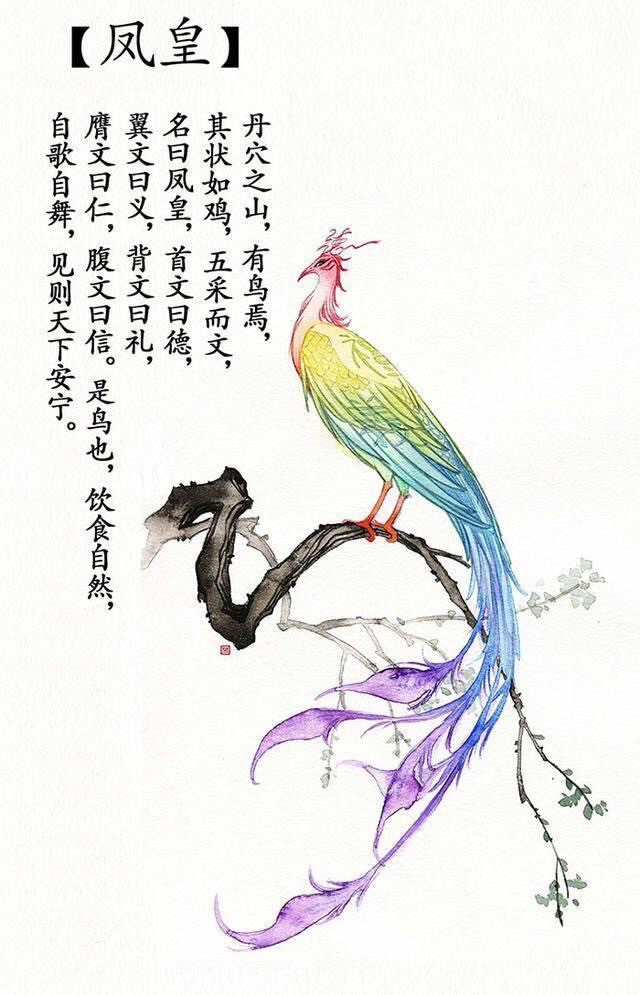 【凤皇】
丹穴之山，有鸟焉，
其状如鸡，五采而文，
名曰凤皇，首文曰德，
翼文曰义，背文曰礼，
膺文曰仁，腹文曰信。是鸟也，饮食自然，
自歌自舞，见则天下安宁。